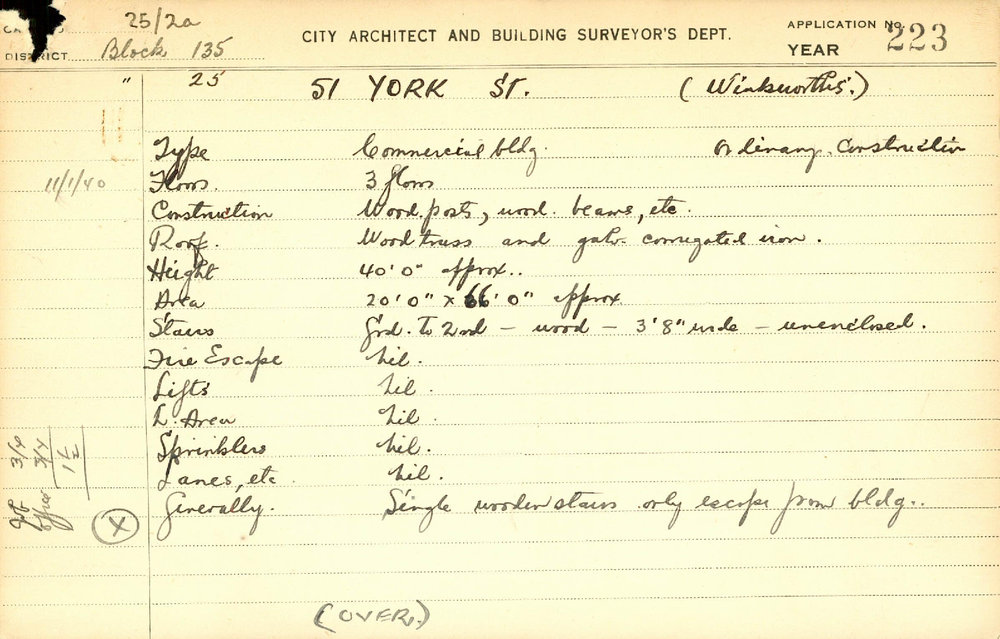 25/2a
CITY ARCHITECT AND BUILDING SURVEYOR'S DEPT.
APPLICATION No. 223
DISTRICT Block 135
YEAR
" 25 51 YORK ST. (Winkworths.)
Type Commercial bldg. Ordinary Construction
11/1/40 Floors. 3 floors
Construction Wood posts, wood beams, etc.
Roof. Wood truss and galv. corrugated iron.
Height 40'0" approx..
Area 20'0" x 66'0" approx
Stairs Grd. to 2nd – wood – 3'8" wide – unenclosed.
Fire Escape Nil.
Lifts Nil.
L. Area Nil.
Sprinklers Nil.
Lanes, etc Nil.
Generally. Single wooden stairs only escape from bldg..
3/4
3/4
1 1/2
X
(OVER.)